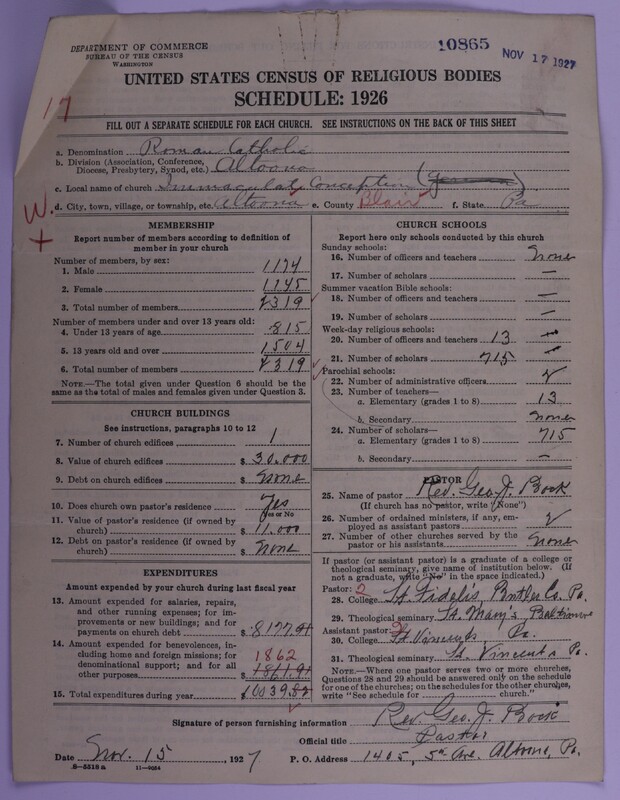 DEPARTMENT OF COMMERCE
BUREAU OF THE CENSUS
WASHINGTON
10865
NOV 17 1927
17
UNITED STATES CENSUS OF RELIGIOUS BODIES
SCHEDULE: 1926
FILL OUT A SEPARATE SCHEDULE FOR EACH CHURCH. SEE INSTRUCTIONS ON THE BACK OF THIS SHEET
a. Denomination Roman Catholic
b. Division (Association, Conference, Diocese, Presbytery, Synod, etc.) Altoona
c. Local name of church Immaculate Conception (German)
d. City, town, village, or township, etc. Altoona e. County Blair f. State Pa
W.
+
MEMBERSHIP
Report number of members according to definition of
member in your church
Number of members, by sex:
1. Male 1174
2. Female 1145
3. Total number of members 2319
Number of members under and over 13 years old:
4. Under 13 years of age 815
5. 13 years old and over 1504
6. Total number of members 2319
NOTE.—The total given under Question 6 should be
the same as the total of males and females given under Question 3.
CHURCH BUILDINGS
See instructions, paragraphs 10 to 12
7. Number of church edifices 1
8. Value of church edifices $ 30.000
9. Debt on church edifices $ None
10. Does church own pastor's residence? Yes
Yes or No
11. Value of pastor's residence (if owned by
church) $ 11.000
12. Debt on pastor's residence (if owned by
church) $ None
EXPENDITURES
Amount expended by your church during last fiscal year
13. Amount expended for salaries, repairs,
and other running expenses; for im-
provements or new buildings; and for
payments on church debt $ 8177.91
14. Amount expended for benevolences, in-
cluding home and foreign missions; for
denominational support; and for all
other purposes 1862
$ 1861.91
15. Total expenditures during year $ 10039.82
CHURCH SCHOOLS
Report here only schools conducted by this church
Sunday schools:
16. Number of officers and teachers None
17. Number of scholars —
Summer vacation Bible schools:
18. Number of officers and teachers —
19. Number of scholars —
Week-day religious schools:
20. Number of officers and teachers 13
21. Number of scholars 715
Parochial schools:
22. Number of administrative officers 2
23. Number of teachers—
a. Elementary (grades 1 to 8) 13
b. Secondary None
24. Number of scholars—
a. Elementary (grades 1 to 8) 715
b. Secondary —
PASTOR
25. Name of pastor Rev. Geo. J. Bock
(If church has no pastor, write "None")
26. Number of ordained ministers, if any, em-
ployed as assistant pastors 2
27. Number of other churches served by the
pastor or his assistants None
If pastor (or assistant pastor) is a graduate of a college or
theological seminary, give name of institution below. (If
not a graduate, write "No" in the space indicated.)
Pastor: 2
28. College St. Fidelis, Butler Co. Pa.
29. Theological seminary St. Mary's Baltimore
Assistant pastor: 2
30. College St. Vincents, Pa.
31. Theological seminary St. Vincents Pa.
NOTE.—Where one pastor serves two or more churches,
Questions 28 and 29 should be answered only on the schedule
for one of the churches; on the schedules for the other churches,
write "See schedule for church."
Signature of person furnishing information Rev. Geo. J. Bock
Official title Pastor
Date Nov. 15, 1927 P. O. Address 1405, 5th Ave. Altoona, Pa.
8—5318a 11—9054